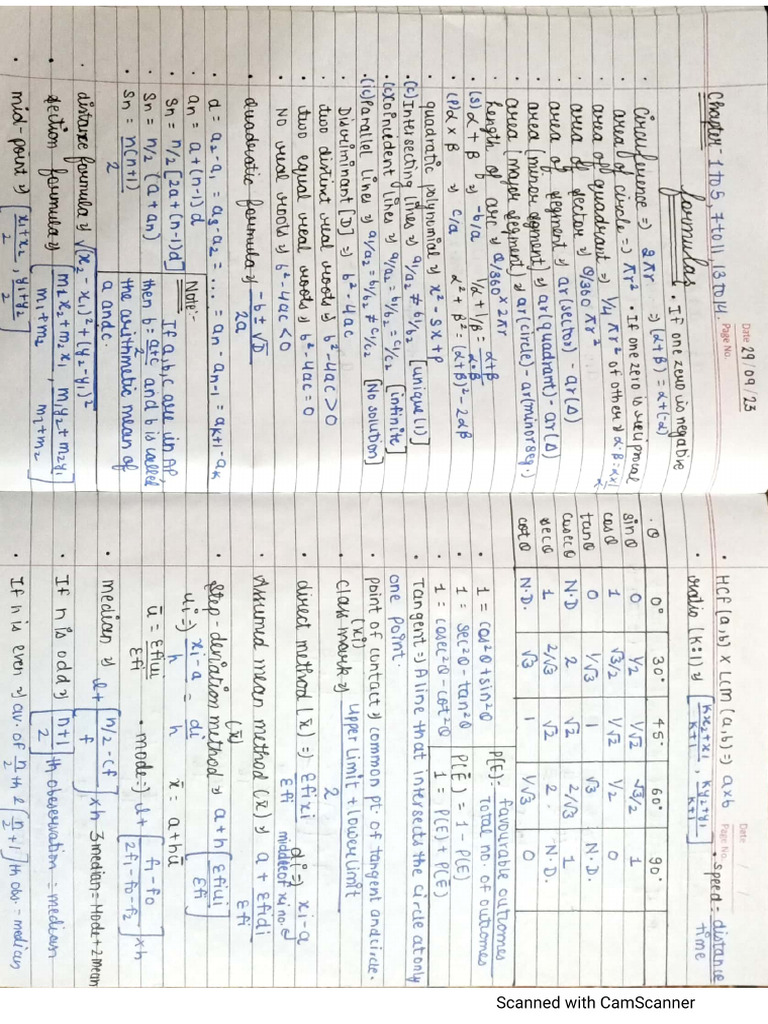 Date 29/09/23
Page No.
Chapter - 1 to 5, 7 to 11, 13 to 14.
formulas
• If one zero is negative
⇒ (α+β) = α+(-α)
• Circumference ⇒ 2πr
• area of circle ⇒ πr²
• If one zero is reciprocal
of other ⇒ α·β = α×1/α
• area of quadrant ⇒ 1/4 πr²
• area of sector ⇒ θ/360 πr²
• area of segment ⇒ ar(sector) - ar(Δ)
• area [minor segment] ⇒ ar(quadrant) - ar(Δ)
• area [major segment] ⇒ ar(circle) - ar(minor seg.)
• length of arc ⇒ θ/360 × 2πr
• (S) α + β ⇒ -b/a
1/α + 1/β = α+β/α·β
• (P) α × β ⇒ c/a
α² + β² = (α+β)² - 2αβ
• quadratic polynomial ⇒ x² - Sx + P
• (c) Intersecting lines ⇒ a₁/a₂ ≠ b₁/b₂ [unique (1)]
• (c) Coincident lines ⇒ a₁/a₂ = b₁/b₂ = c₁/c₂ [infinite]
• (ic) Parallel lines ⇒ a₁/a₂ = b₁/b₂ ≠ c₁/c₂ [No solution]
• Discriminant [D] ⇒ b² - 4ac
• two distinct real roots ⇒ b² - 4ac > 0
• two equal real roots ⇒ b² - 4ac = 0
• No real roots ⇒ b² - 4ac < 0
• Quadratic formula ⇒ -b ± √D / 2a
• d = a₂ - a₁ = a₃ - a₂ = ... = an - an-1 = aK+1 - aK
• an = a + (n-1)d
• Sn = n/2 [2a + (n-1)d]
• Sn = n/2 (a + an)
• Sn = n(n+1)/2
Note:-
If a, b, c are in AP,
then b = a+c/2 and b is called
the arithmetic mean of
a and c.
• distance formula ⇒ √(x₂ - x₁)² + (y₂ - y₁)²
• section formula ⇒ [m₁x₂ + m₂x₁/m₁ + m₂, m₁y₂ + m₂y₁/m₁ + m₂]
• mid-point ⇒ [x₁ + x₂/2, y₁ + y₂/2]
Date / /
Page No.
• HCF (a,b) × LCM (a,b) ⇒ a×b
• speed = distance/time
• ratio (K:1) ⇒ [Kx₂ + x₁/K+1, Ky₂ + y₁/K+1]
• θ 0° 30° 45° 60° 90°
sinθ 0 1/2 1/√2 √3/2 1
cosθ 1 √3/2 1/√2 1/2 0
tanθ 0 1/√3 1 √3 N.D.
cosecθ N.D 2 √2 2/√3 1
secθ 1 2/√3 √2 2 N.D.
cotθ N.D. √3 1 1/√3 0
• 1 = cos²θ + sin²θ
• 1 = sec²θ - tan²θ
• 1 = cosec²θ - cot²θ
P(E) = favourable outcomes/Total no. of outcomes
P(Ē) = 1 - P(E)
1 = P(E) + P(Ē)
• Tangent ⇒ A line that intersects the circle at only
one point.
• point of contact ⇒ common pt. of tangent and circle.
• Class mark (xi) ⇒ Upper limit + lower limit/2
• direct method (x̄) ⇒ Σfixi/Σfi
di ⇒ xi - a
• Assumed mean method (x̄) ⇒ a + Σfidi/Σfi
• Step-deviation method (x̄) ⇒ a + h [Σfiui/Σfi]
ui ⇒ xi - a/h = di/h
x̄ = a + hū
ū = Σfiui/Σfi
• mode ⇒ l + [f₁ - f₀/2f₁ - f₀ - f₂] × h
• median ⇒ l + [n/2 - Cf/f] × h
3 median = Mode + 2 mean
• If n is odd ⇒ [n+1/2] th observation = median
• If n is even ⇒ av. of n/2 th & [n/2 + 1] th obs. = median
Scanned with CamScanner